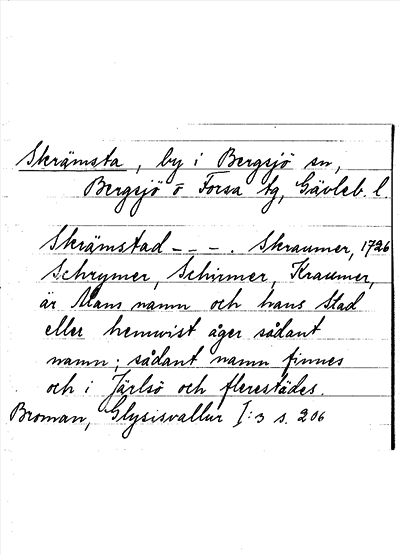 Skrämsta, by i Bergsjö sn,
Bergsjö o Forsa tg, Gävleb. l.
Skrämstad - - -. Skraumer, 1726
Schrymer, Schirmer, Kraumer,
är Mans namn och hans Stad
eller hemwist äger sådant
namn; sådant namn finnes
och i Järlsö och flerestädes.
Broman, Glysisvallur I:3 s. 206